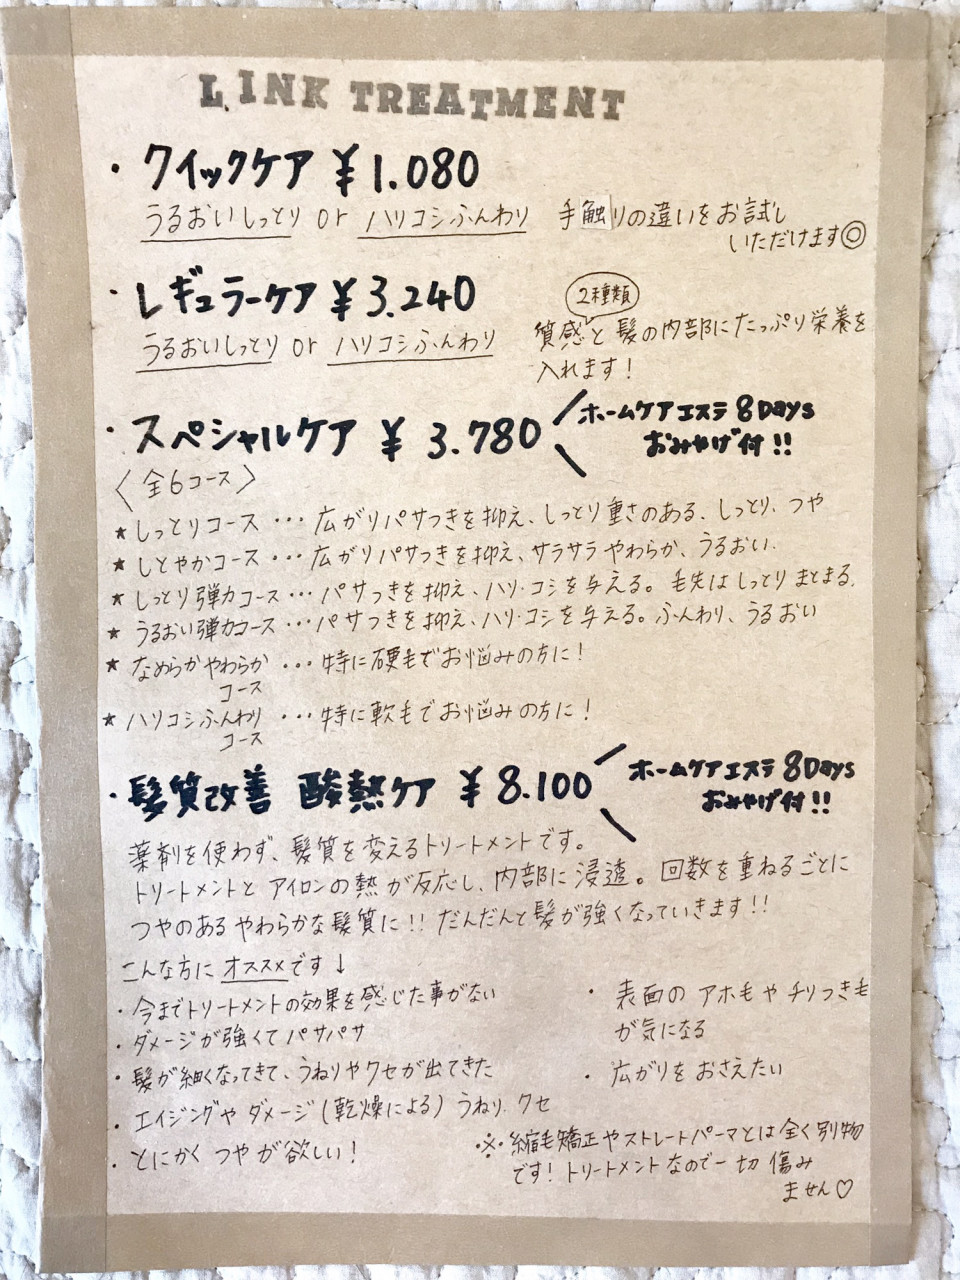 LINK TREATMENT
・クイックケア ¥1.080
うるおいしっとり or ハリコシふんわり
手触りの違いをお試し
いただけます◎
・レギュラーケア ¥3.240
うるおいしっとり or ハリコシふんわり
2種類
質感と髪の内部にたっぷり栄養を
入れます!
・スペシャルケア ¥3.780
ホームケアエステ 8Days
おみやげ付!!
〈全6コース〉
★しっとりコース…広がりパサつきを抑え、しっとり重さのある、しっとり、つや
★しとやかコース…広がりパサつきを抑え、サラサラやわらか、うるおい.
★しっとり弾力コース…パサつきを抑え、ハリ・コシを与える。毛先はしっとりまとまる.
★うるおい弾力コース…パサつきを抑え、ハリ・コシを与える。ふんわり、うるおい
★なめらかやわらか…特に硬毛でお悩みの方に!
コース
★ハリコシふんわり…特に軟毛でお悩みの方に!
コース
・髪質改善 酸熱ケア ¥8.100
ホームケアエステ 8Days
おみやげ付!!
薬剤を使わず、髪質を変えるトリートメントです。
トリートメントとアイロンの熱が反応し、内部に浸透。回数を重ねるごとに
つやのあるやわらかな髪質に!!だんだんと髪が強くなっていきます!!
こんな方にオススメです↓
・今までトリートメントの効果を感じた事がない
・ダメージが強くてパサパサ
・髪が細くなってきて、うねりやクセが出てきた
・エイジングやダメージ(乾燥による)うねり、クセ
・とにかくつやが欲しい!
・表面のアホ毛やチリつき毛
が気になる
・広がりをおさえたい
※縮毛矯正やストレートパーマとは全く別物
です!トリートメントなので一切傷み
ません♡